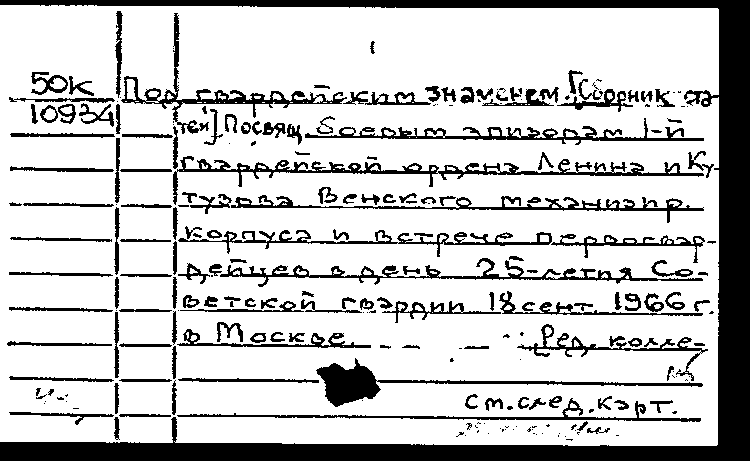 50к Под гвардейским знаменем. [Сборник ста-
10934 тей]. Посвящ. боевым эпизодам 1-й
гвардейской ордена Ленина и Ку-
тузова Венского механизир.
корпуса и встрече первогвар-
дейцев в день 25-летия Со-
ветской гвардии 18 сент. 1966 г.
в Москве. — — — Ред. колле-
см. след. карт.